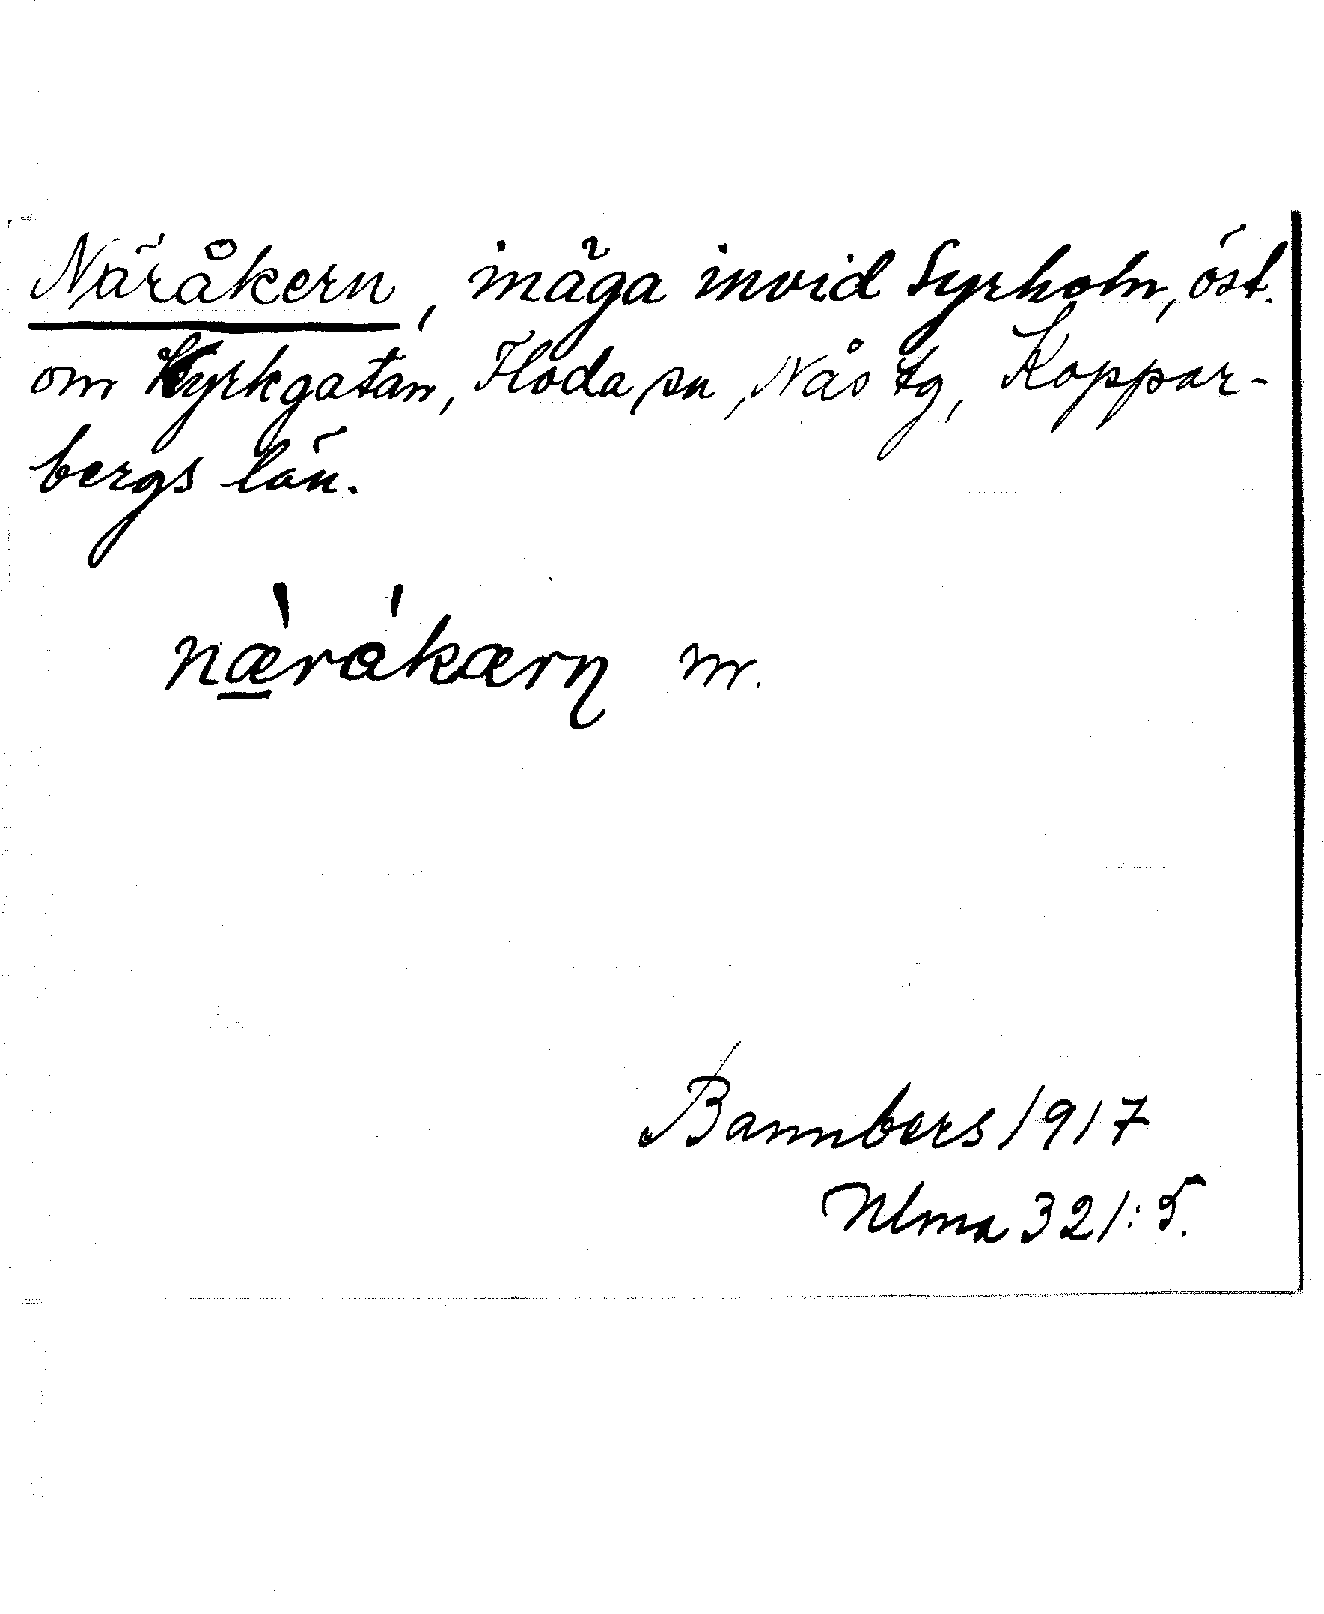 Näråkern, inäga invid Syrholn, öst.
om Kyrkgatan, Floda sn, Nås tg, Koppar-
bergs län.
næ̀råkærn m.
Bannbers 1917
Ulma 321:5.